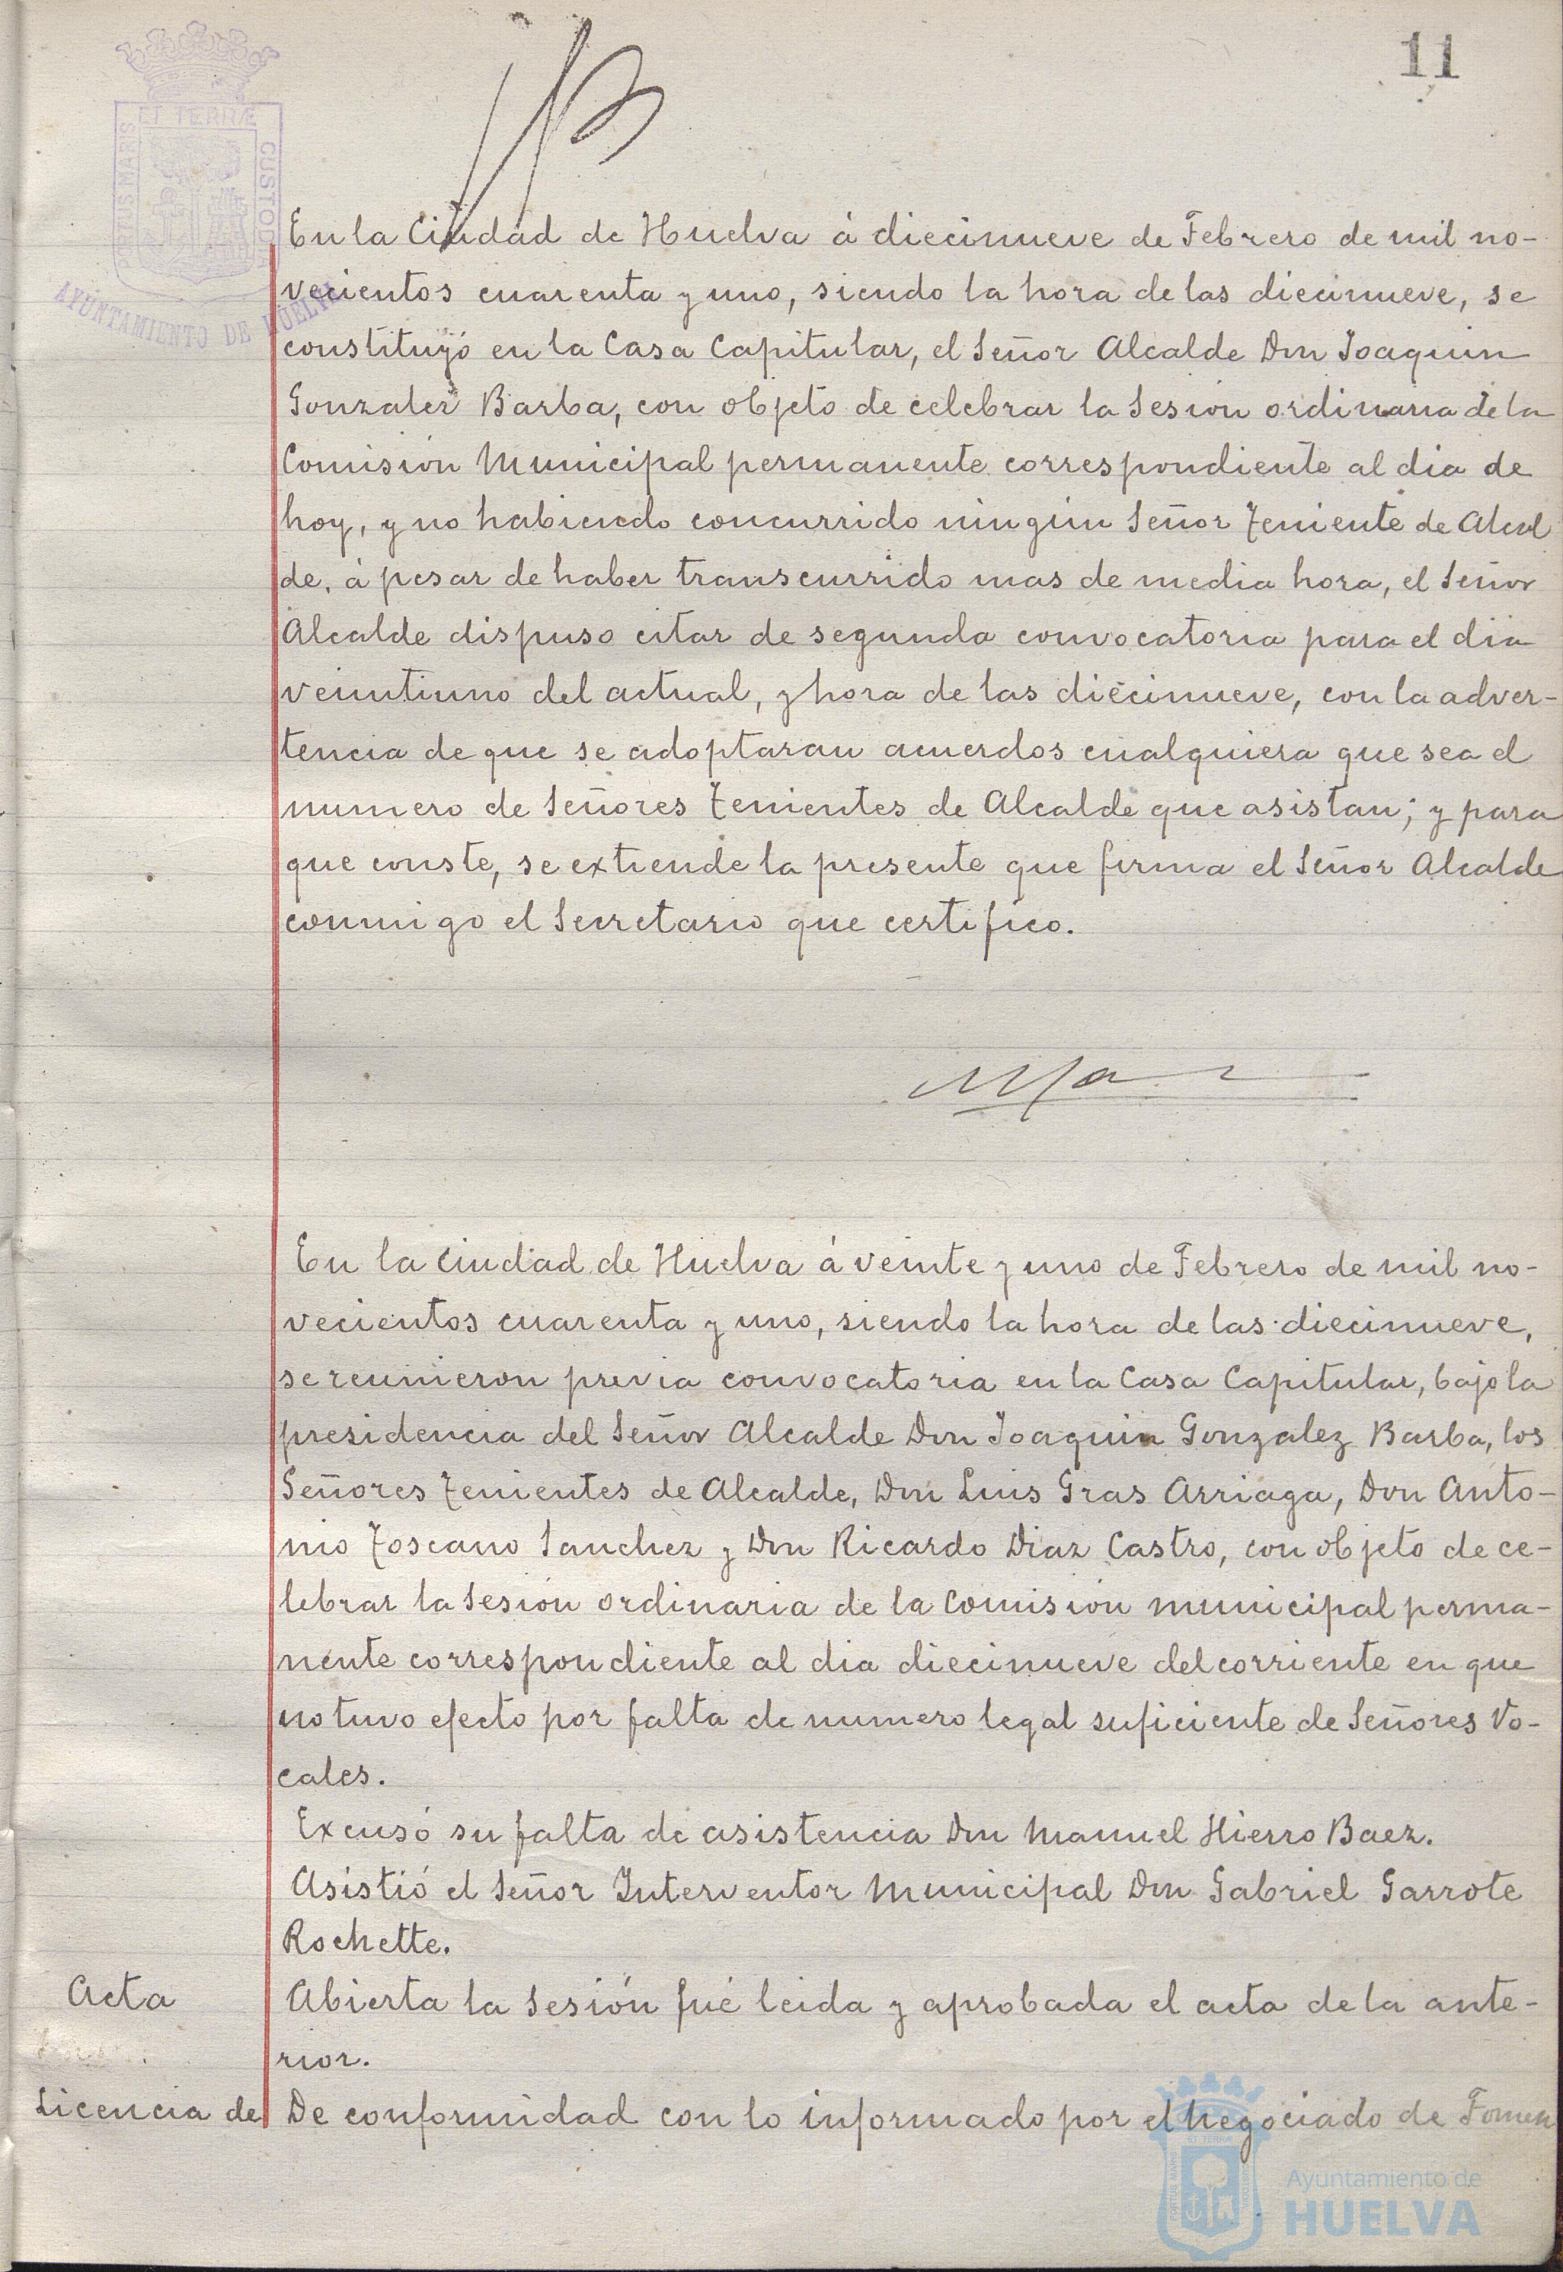 11
ET TERRÆ
PORTUS MARIS
CUSTODIA
AYUNTAMIENTO DE HUELVA
En la Ciudad de Huelva á diecinueve de Febrero de mil no-
vecientos cuarenta y uno, siendo la hora de las diecinueve, se
constituyó en la Casa Capitular, el Señor Alcalde Don Joaquin
Gonzalez Barba, con objeto de celebrar la Sesión ordinaria de la
Comisión Municipal permanente correspondiente al dia de
hoy, y no habiendo concurrido ningún Señor Teniente de Alcal
de, á pesar de haber transcurrido mas de media hora, el Señor
Alcalde dispuso citar de segunda convocatoria para el dia
veintiuno del actual, y hora de las diecinueve, con la adver-
tencia de que se adoptaran acuerdos cualquiera que sea el
numero de Señores Tenientes de Alcalde que asistan; y para
que conste, se extiende la presente que firma el Señor Alcalde
conmigo el Secretario que certifico.
En la Ciudad de Huelva á veinte y uno de Febrero de mil no-
vecientos cuarenta y uno, siendo la hora de las diecinueve,
se reunieron previa convocatoria en la Casa Capitular, bajo la
presidencia del Señor Alcalde Don Joaquin Gonzalez Barba, los
Señores Tenientes de Alcalde, Don Luis Gras Arriaga, Don Anto-
nio Toscano Sanchez y Don Ricardo Diaz Castro, con objeto de ce-
lebrar la Sesión ordinaria de la Comisión municipal perma-
nente correspondiente al dia diecinueve del corriente en que
no tuvo efecto por falta de numero legal suficiente de Señores Vo-
cales.
Excusó su falta de asistencia Don Manuel Hierro Baez.
Asistió el Señor Interventor Municipal Don Gabriel Garrote
Rochette.
Acta Abierta la Sesión fué leida y aprobada el acta de la ante-
rior.
Licencia de De conformidad con lo informado por el Negociado de Fomen
Ayuntamiento de
HUELVA